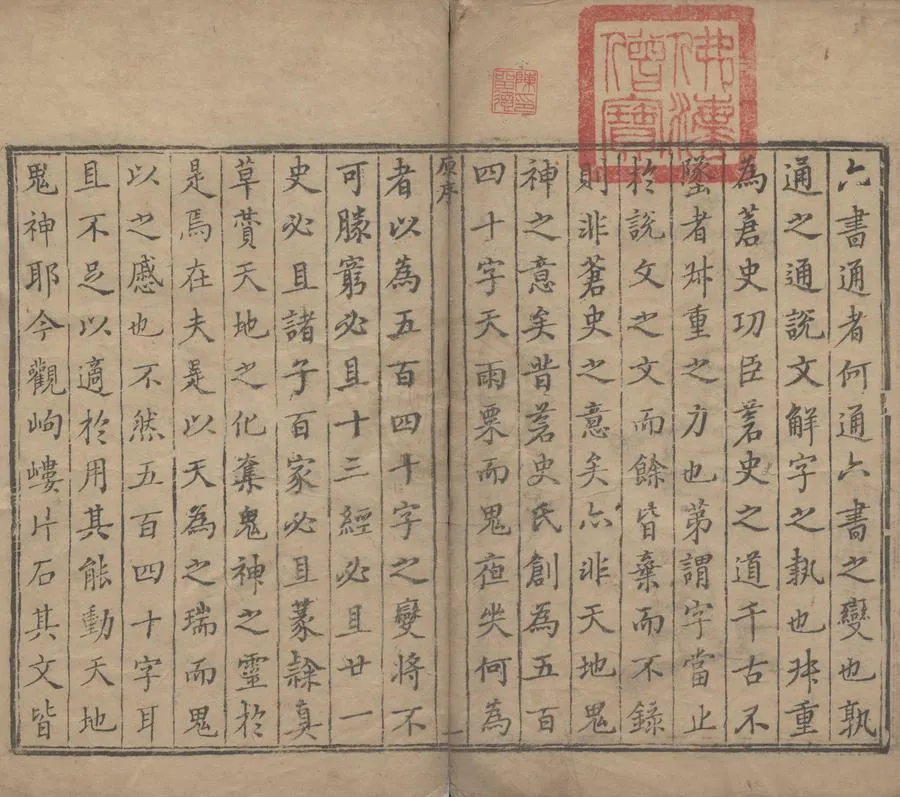 佛灋
僧寶
六書通者何通六書之變也孰
通之通說文解字之孰也叔重
為蒼史功臣蒼史之道千古不
墜者叔重之力也第謂字當止
於說文之文而餘皆棄而不錄
則非蒼史之意矣亦非天地鬼
神之意矣昔蒼史氏創為五百
四十字天雨粟而鬼夜哭何為
原序 一
者以為五百四十字之變將不
可勝窮必且十三經必且廿一
史必且諸子百家必且篆隸真
草賛天地之化奪鬼神之靈於
是焉在夫是以天為之瑞而鬼
以之慼也不然五百四十字耳
且不足以適於用其能動天地
鬼神耶今觀岣嶁片石其文皆